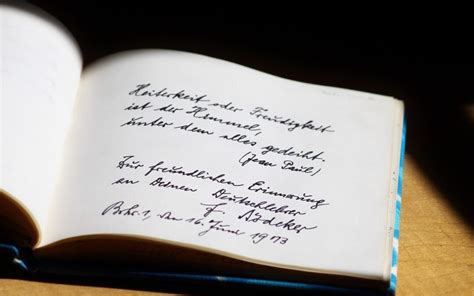 Heiterkeit oder Freudigkeit
ist der Himmel,
unter dem alles gedeiht.
(Jean Paul)
Zur freundlichen Erinnerung
an Deinen Deutschlehrer
G. Rödeker
den 16. Juni 1973